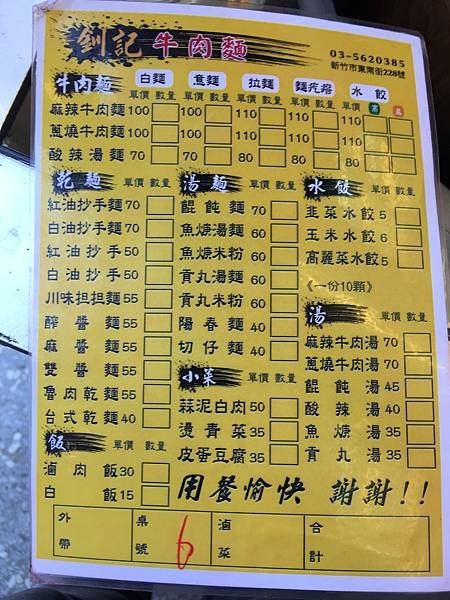 釗記牛肉麵
03-5620385
新竹市東南街228號
牛肉麵 白麵 意麵 拉麵 麵疙瘩 水餃
單價 數量 單價 數量 單價 數量 單價 數量 單價
麻辣牛肉麵 100 100 110 110 110
蔥燒牛肉麵 100 100 110 110 110
酸辣湯麵 70 70 80 80 80
乾麵 單價 數量
紅油抄手麵 70
白油抄手麵 70
紅油抄手 50
白油抄手 50
川味担担麵 55
醡醬麵 55
麻醬麵 55
雙醬麵 55
魯肉乾麵 55
台式乾麵 40
飯 單價 數量
滷肉飯 30
白飯 15
湯麵 單價 數量
餛飩麵 70
魚焿湯麵 60
魚焿米粉 60
貢丸湯麵 60
貢丸米粉 60
陽春麵 40
切仔麵 40
小菜 單價 數量
蒜泥白肉 50
燙青菜 35
皮蛋豆腐 35
水餃 單價 數量
韭菜水餃 5
玉米水餃 6
高麗菜水餃 5
《一份10顆》
湯 單價 數量
麻辣牛肉湯 70
蔥燒牛肉湯 70
餛飩湯 45
酸辣湯 40
魚焿湯 35
貢丸湯 35
用餐愉快 謝謝!!
外帶 桌號 6 滷菜 合計